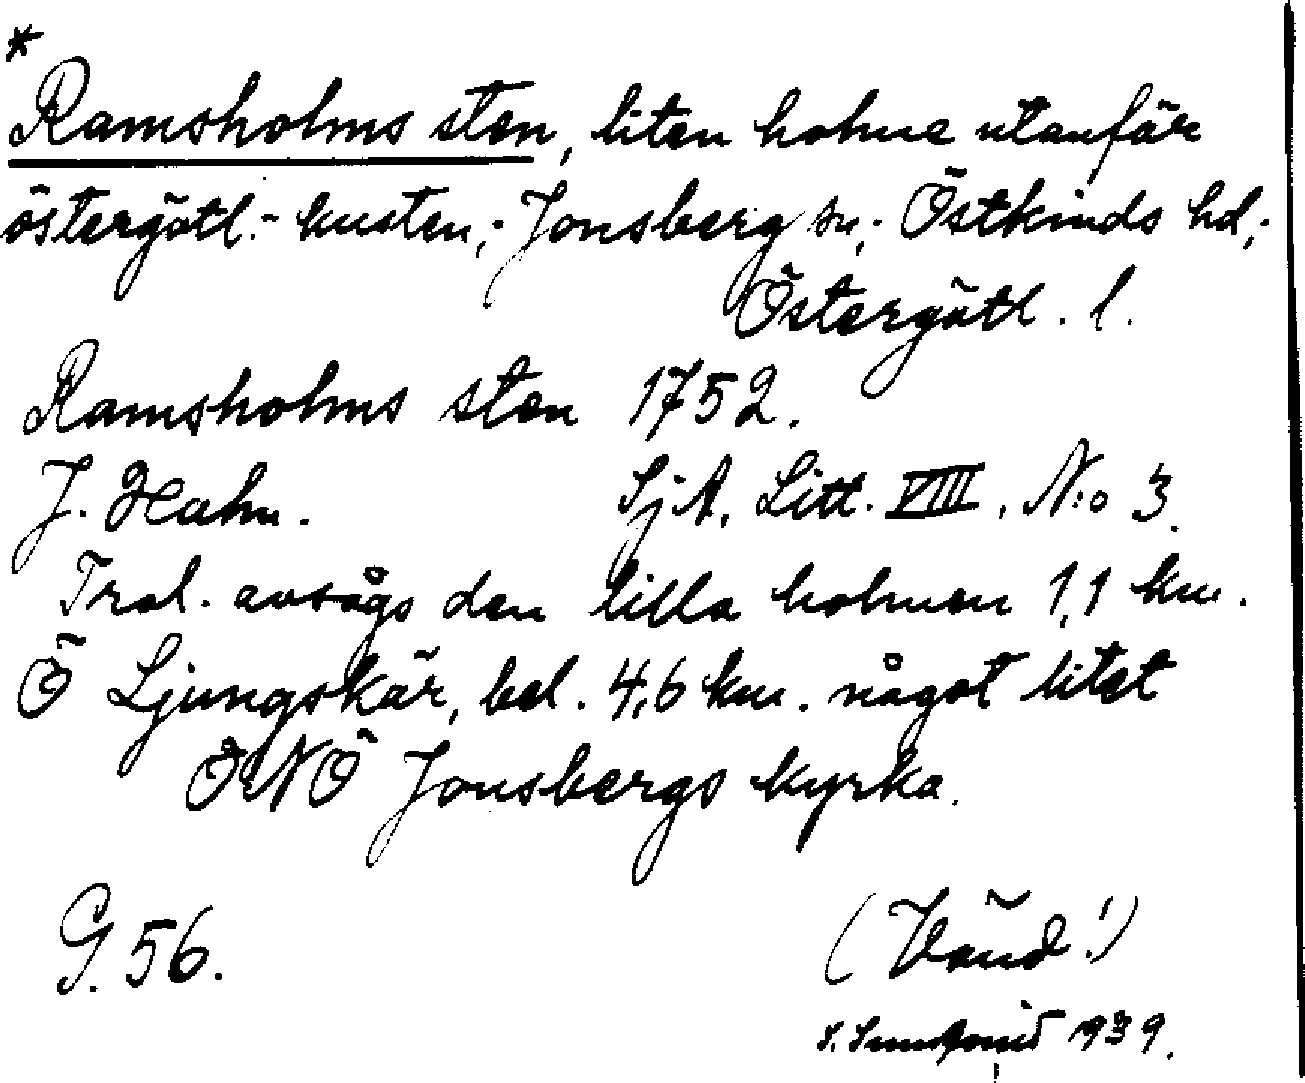 *
Ramsholms sten, liten holme utanför
östergötl.-kusten,- Jonsberg sn,- Östkinds hd,-
Östergötl. l.
Ramsholms sten 1752.
J. Hahn. SjA, Litt. VIII, N:o 3.
Trol. avsågs den lilla holmen 1,1 km.
Ö Ljungskär, bel. 4,6 km. något litet
ÖNÖ Jonsbergs kyrka.
G. 56. (Vänd!)
1939.